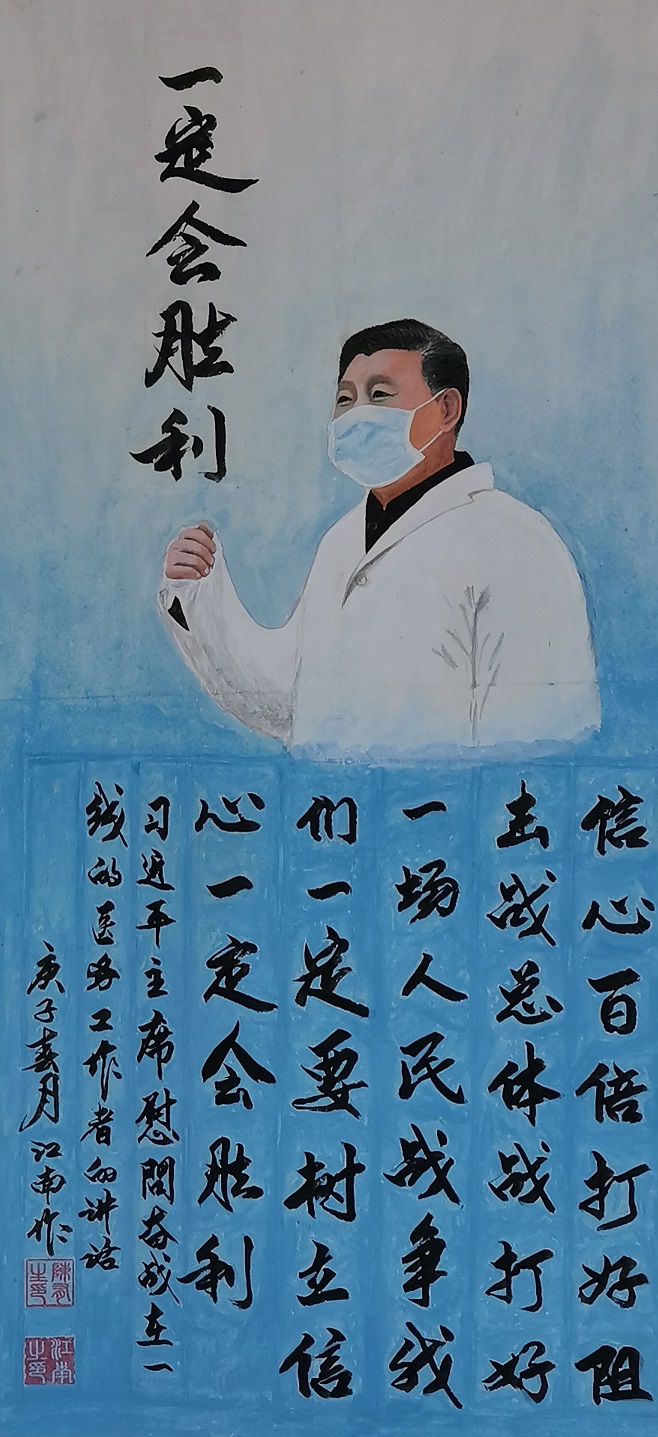 一定会胜利
信心百倍打好阻
击战总体战打好
一场人民战争我
们一定要树立信
心一定会胜利
习近平主席慰問奋战在一
线的医务工作者的讲话
庚子春月江南作
江南之印